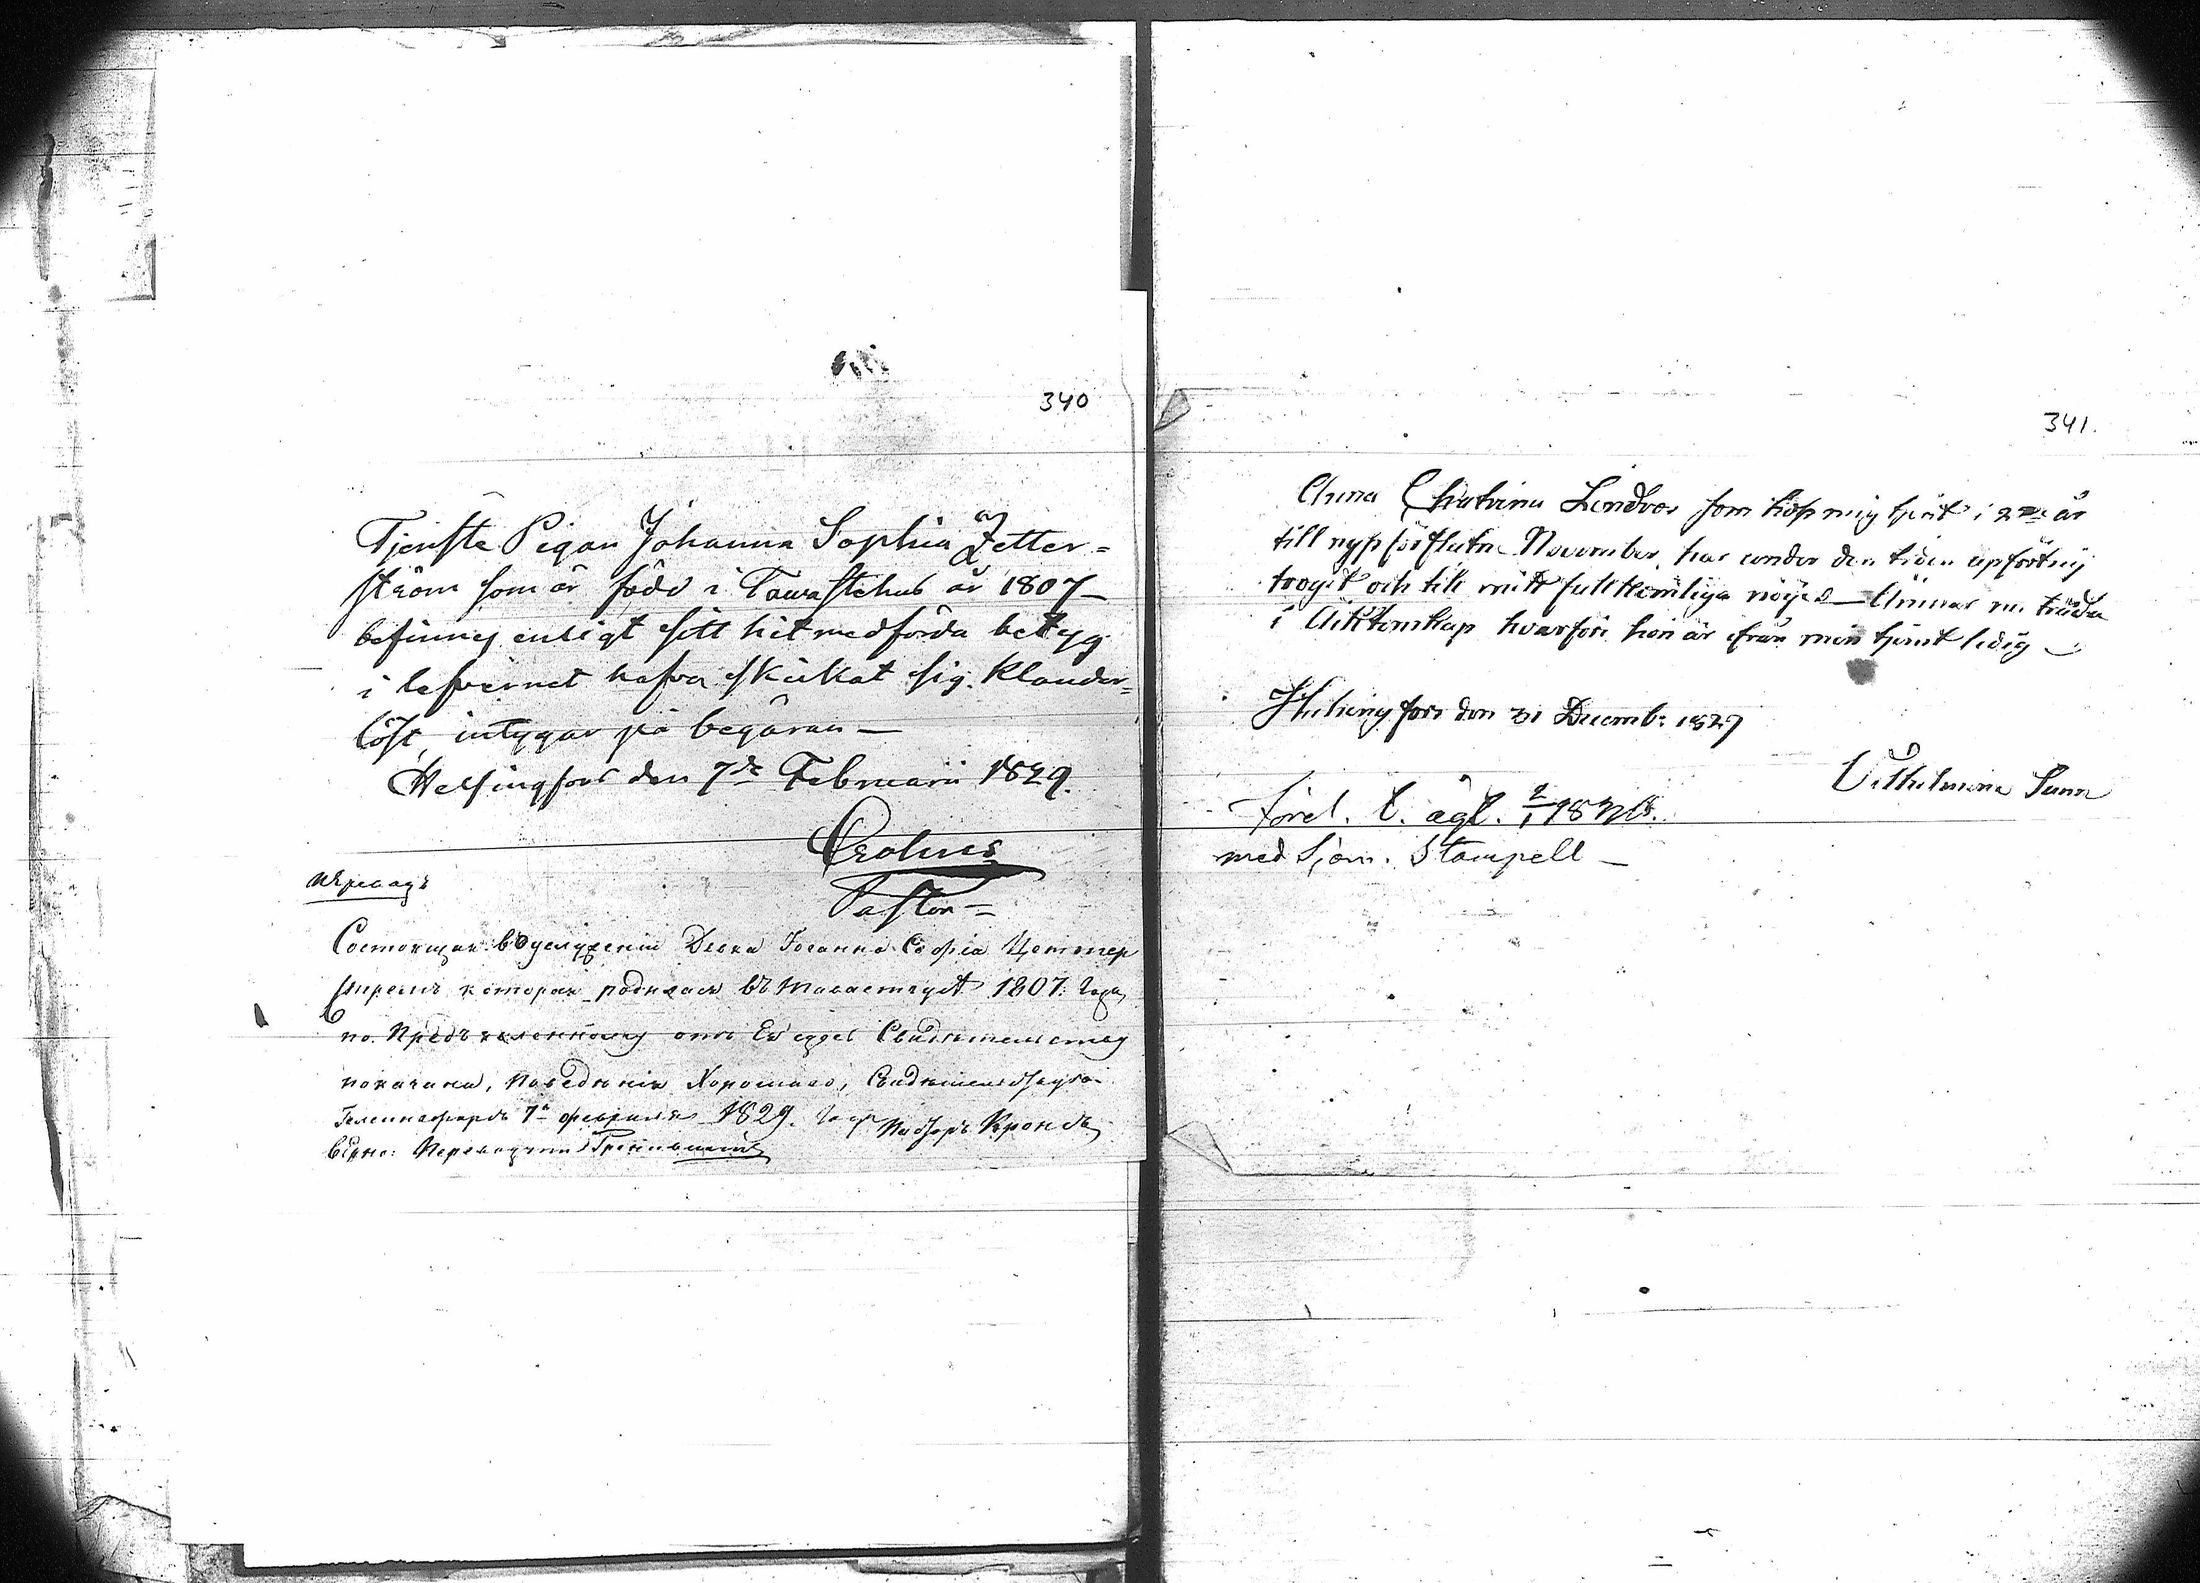 340
Tjenste Pigan Johanna Sophia Zetter=
ström som är född i Tawastehus år 1807–
befinnes enligt sitt hit medförda betyg
i lefvernet hafva skickat sig klander=
löst, intygar på begäran —
Helsingfors den 7de Februarii 1829.
Crohns
Pastor
Переводъ
Состоящая въ услуженіи Девка Іоганна Софіа Цеттер
стремъ которая родилась въ Тавастгусѣ 1807. года
по Предъявленному отъ Ея здесь Свидѣтельству
показана, поведѣнія Хорошаго, Свидѣтельствую
Гельсингфорсъ 7 февраля 1829. года Пасторъ Кронсъ
вѣрно: Переводчикъ
341.
Anna Chatrina Lindros som hos mig tjent i 2 år
till nyss förflutne November, har under den tiden upfört sig
troget och till mitt fullkomliga nöije — Ämnar nu träda
i Äcktenskap hvarföre hon är ifrån min tjenst ledig —
Helsingfors den 31 Decemb: 1827
Vilhelmina
med Sjöm. Stampell —